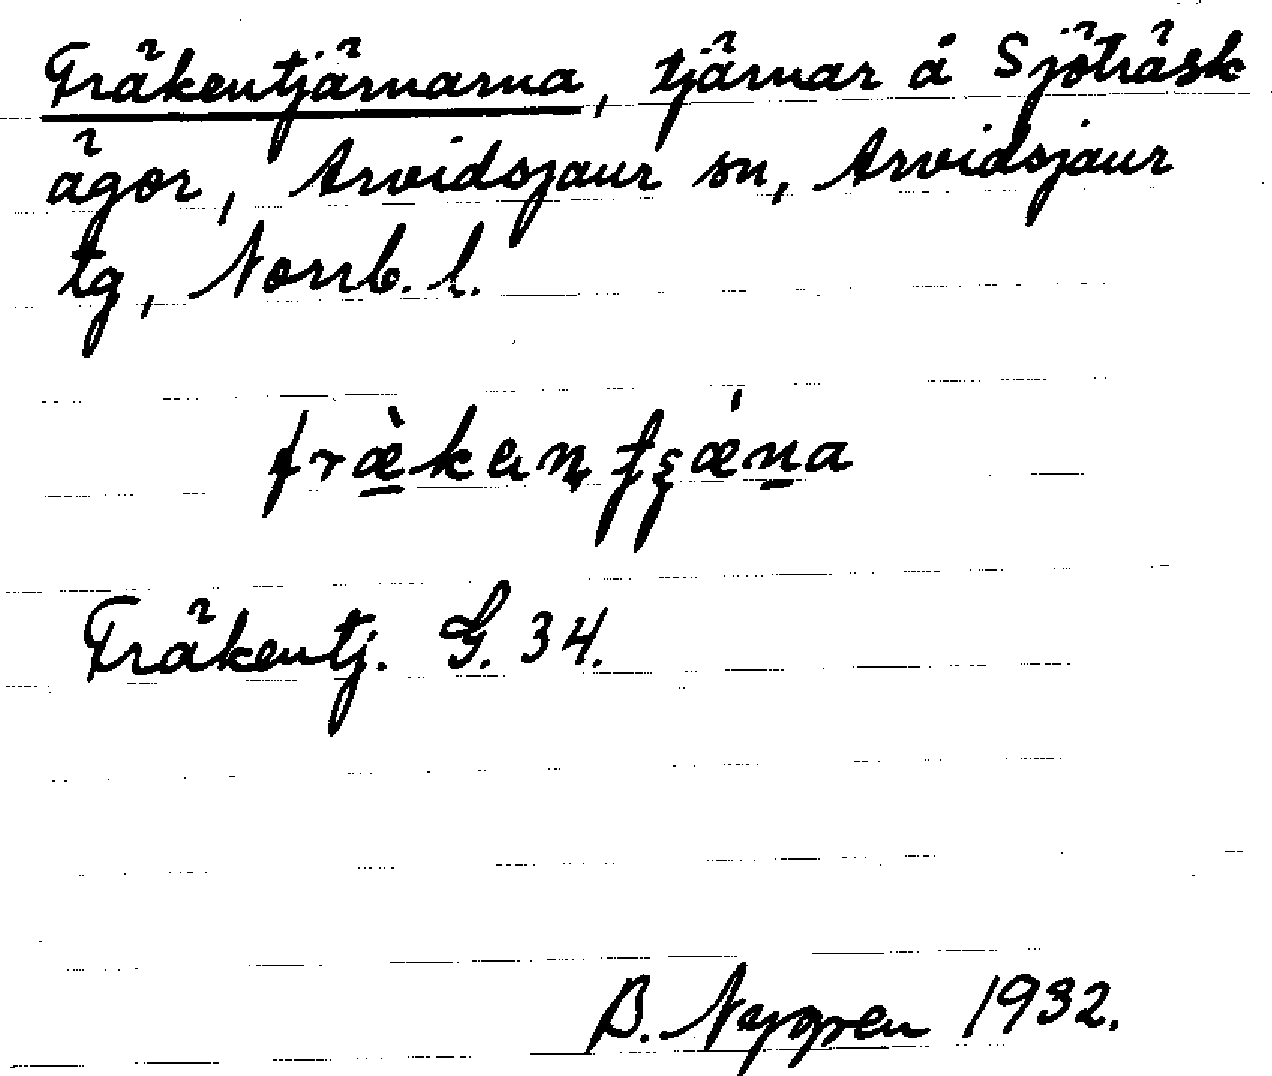 Fräkentjärnarna, tjärnar å Sjöträsk
ägor, Arvidsjaur sn, Arvidsjaur
tg, Norrb. l.
Fräkentj. G. 34.
B. Nygren 1932.